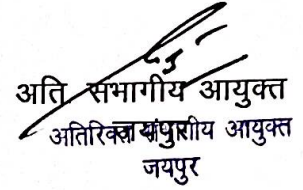 अति. सभागीय आयुक्त
जयपुर
अतिरिक्त संभागीय आयुक्त
जयपुर